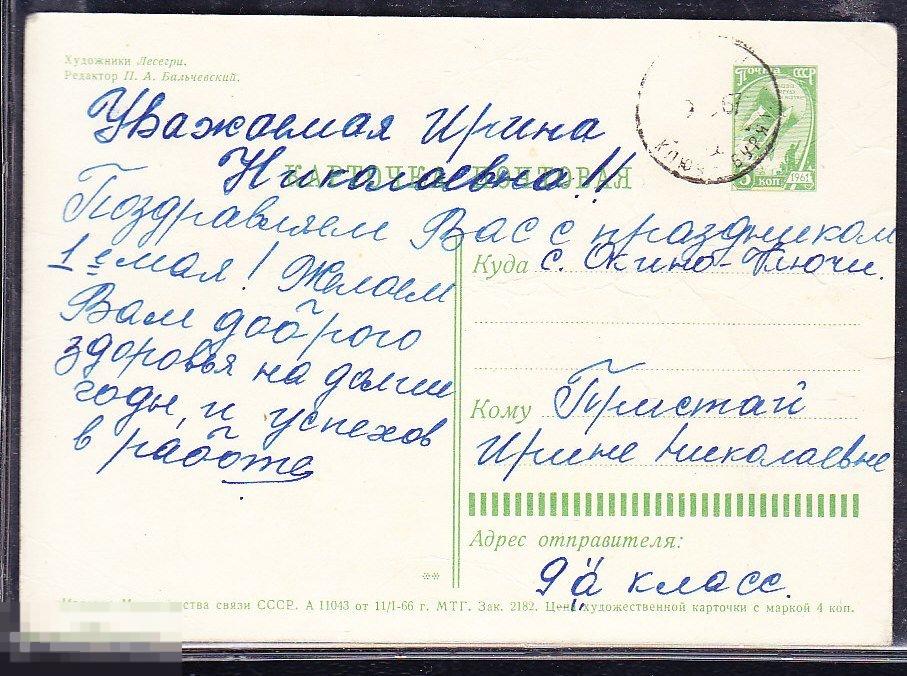 Художники Лесегри.
Редактор П. А. Бальчевский.
Почта СССР
3 коп 1961
КАРТОЧКА ПОЧТОВАЯ
Уважаемая Ирина
Николаевна!!
Поздравляем Вас с праздником
1 е мая! Желаем
Вам доброго
здоровья на долгие
годы, и успехов
в работе
Куда с. Окино-Ключи.
Кому Пристай
Ирине Николаевне
Адрес отправителя:
9 "а" класс.
связи СССР. А 11043 от 11/I-66 г. МТГ. Зак. 2182. Цена художественной карточки с маркой 4 коп.